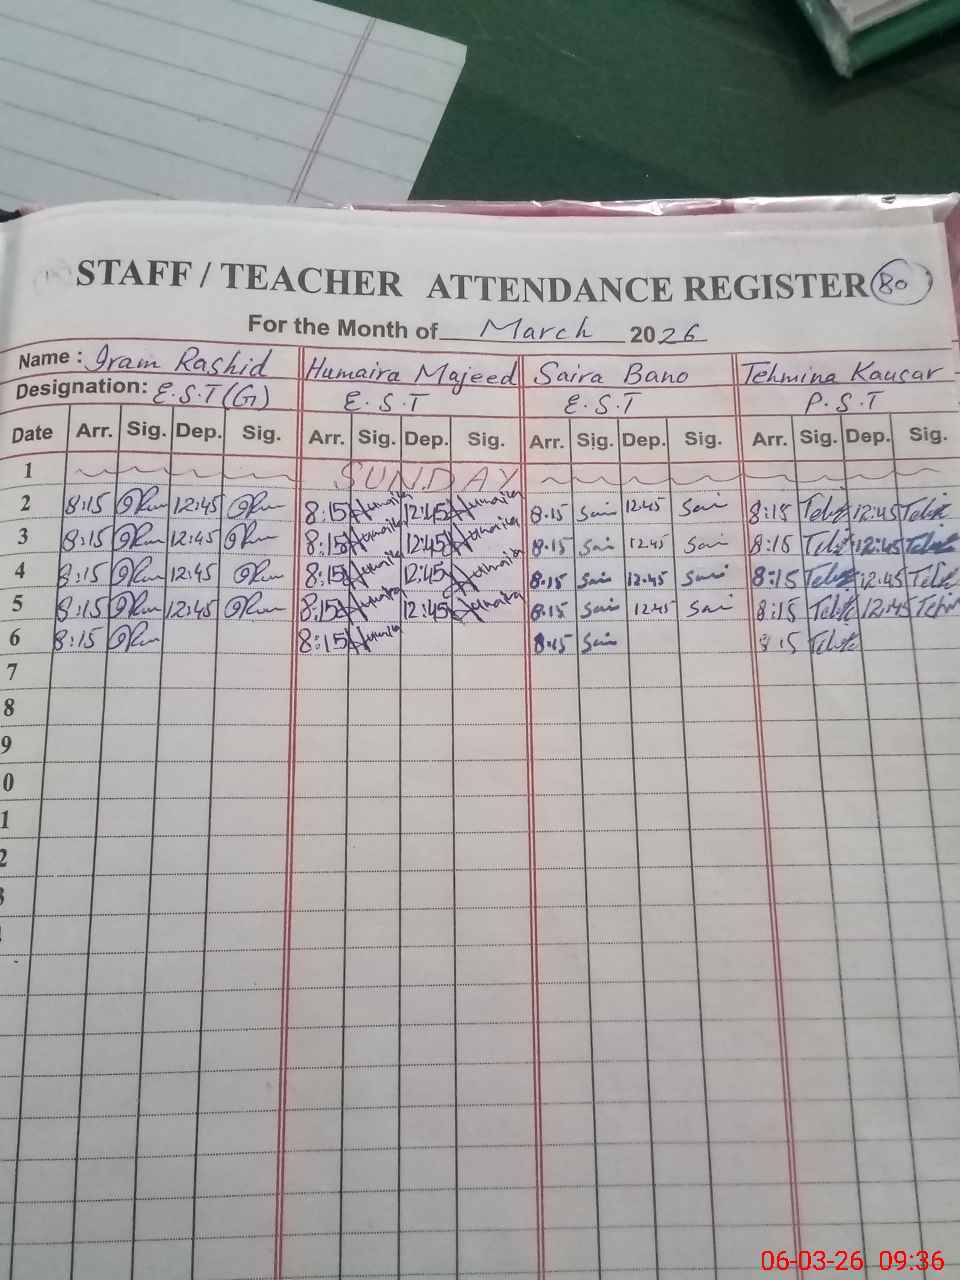 STAFF / TEACHER ATTENDANCE REGISTER 80
For the Month of March 2026
Name : Iram Rashid Humaira Majeed Saira Bano Tehmina Kausar
Designation: E.S.T (G) E.S.T E.S.T P.S.T
Date Arr. Sig. Dep. Sig. Arr. Sig. Dep. Sig. Arr. Sig. Dep. Sig. Arr. Sig. Dep. Sig.
1 SUNDAY
2 8:15 12:45 8:15 Humaira 12:45 Humaira 8:15 12:45 8:15 12:45
3 8:15 12:45 8:15 Humaira 12:45 Humaira 8:15 12:45 8:15 12:45
4 8:15 12:45 8:15 Humaira 12:45 Humaira 8:15 12:45 8:15 12:45
5 8:15 12:45 8:15 Humaira 12:45 Humaira 8:15 12:45 8:15 12:45
6 8:15 8:15 Humaira 8:15 8:15
7
8
9
0
1
2
3
06-03-26 09:36